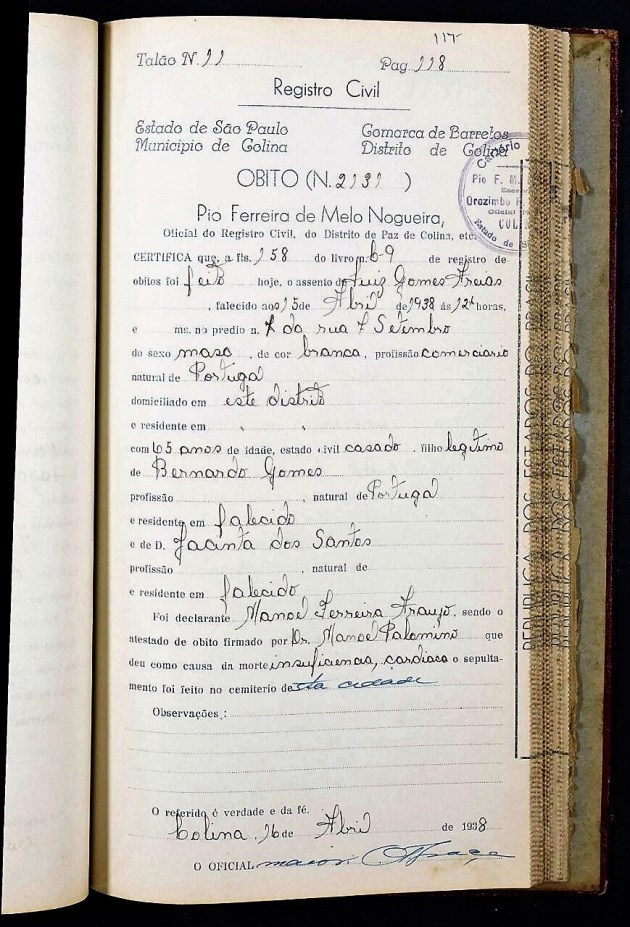 117
Talão N. 11 Pag. 118
Registro Civil
Estado de São Paulo Comarca de Barretos
Municipio de Colina Distrito de Colina
OBITO (N. 2131 )
Pio Ferreira de Melo Nogueira,
Oficial do Registro Civil, do Distrito de Paz de Colina, etc.
CERTIFICA que, a fls. 158 do livro n. 6-9 de registro de
obitos foi feito hoje, o assento de Luiz Gomes
, falecido aos 15 de Abril de 1938 ás 12 horas,
e ms. no predio n. da rua 7 Setembro
do sexo masc , de cor branca, profissão comerciario
natural de Portugal
domiciliado em este distrito
e residente em " "
com 65 anos de idade, estado civil casado , filho legitimo
de Bernardo Gomes
profissão , natural de Portugal
e residente em falecido
e de D. Jacinta dos Santos
profissão , natural de
e residente em falecido
Foi declarante Manoel Ferreira Araujo, sendo o
atestado de obito firmado por Dr. Manoel Palomino que
deu como causa da morte insuficiencia, cardiaca o sepulta-
mento foi feito no cemiterio desta cidade
Observações:
O referido é verdade e da fé.
Colina, 16 de Abril de 1938
O OFICIAL maior.
Cartório
Pio F. M.
Orozimbo
Oficial
COL
Estado de S
REPUBLICA DOS ESTADOS DO BRASIL